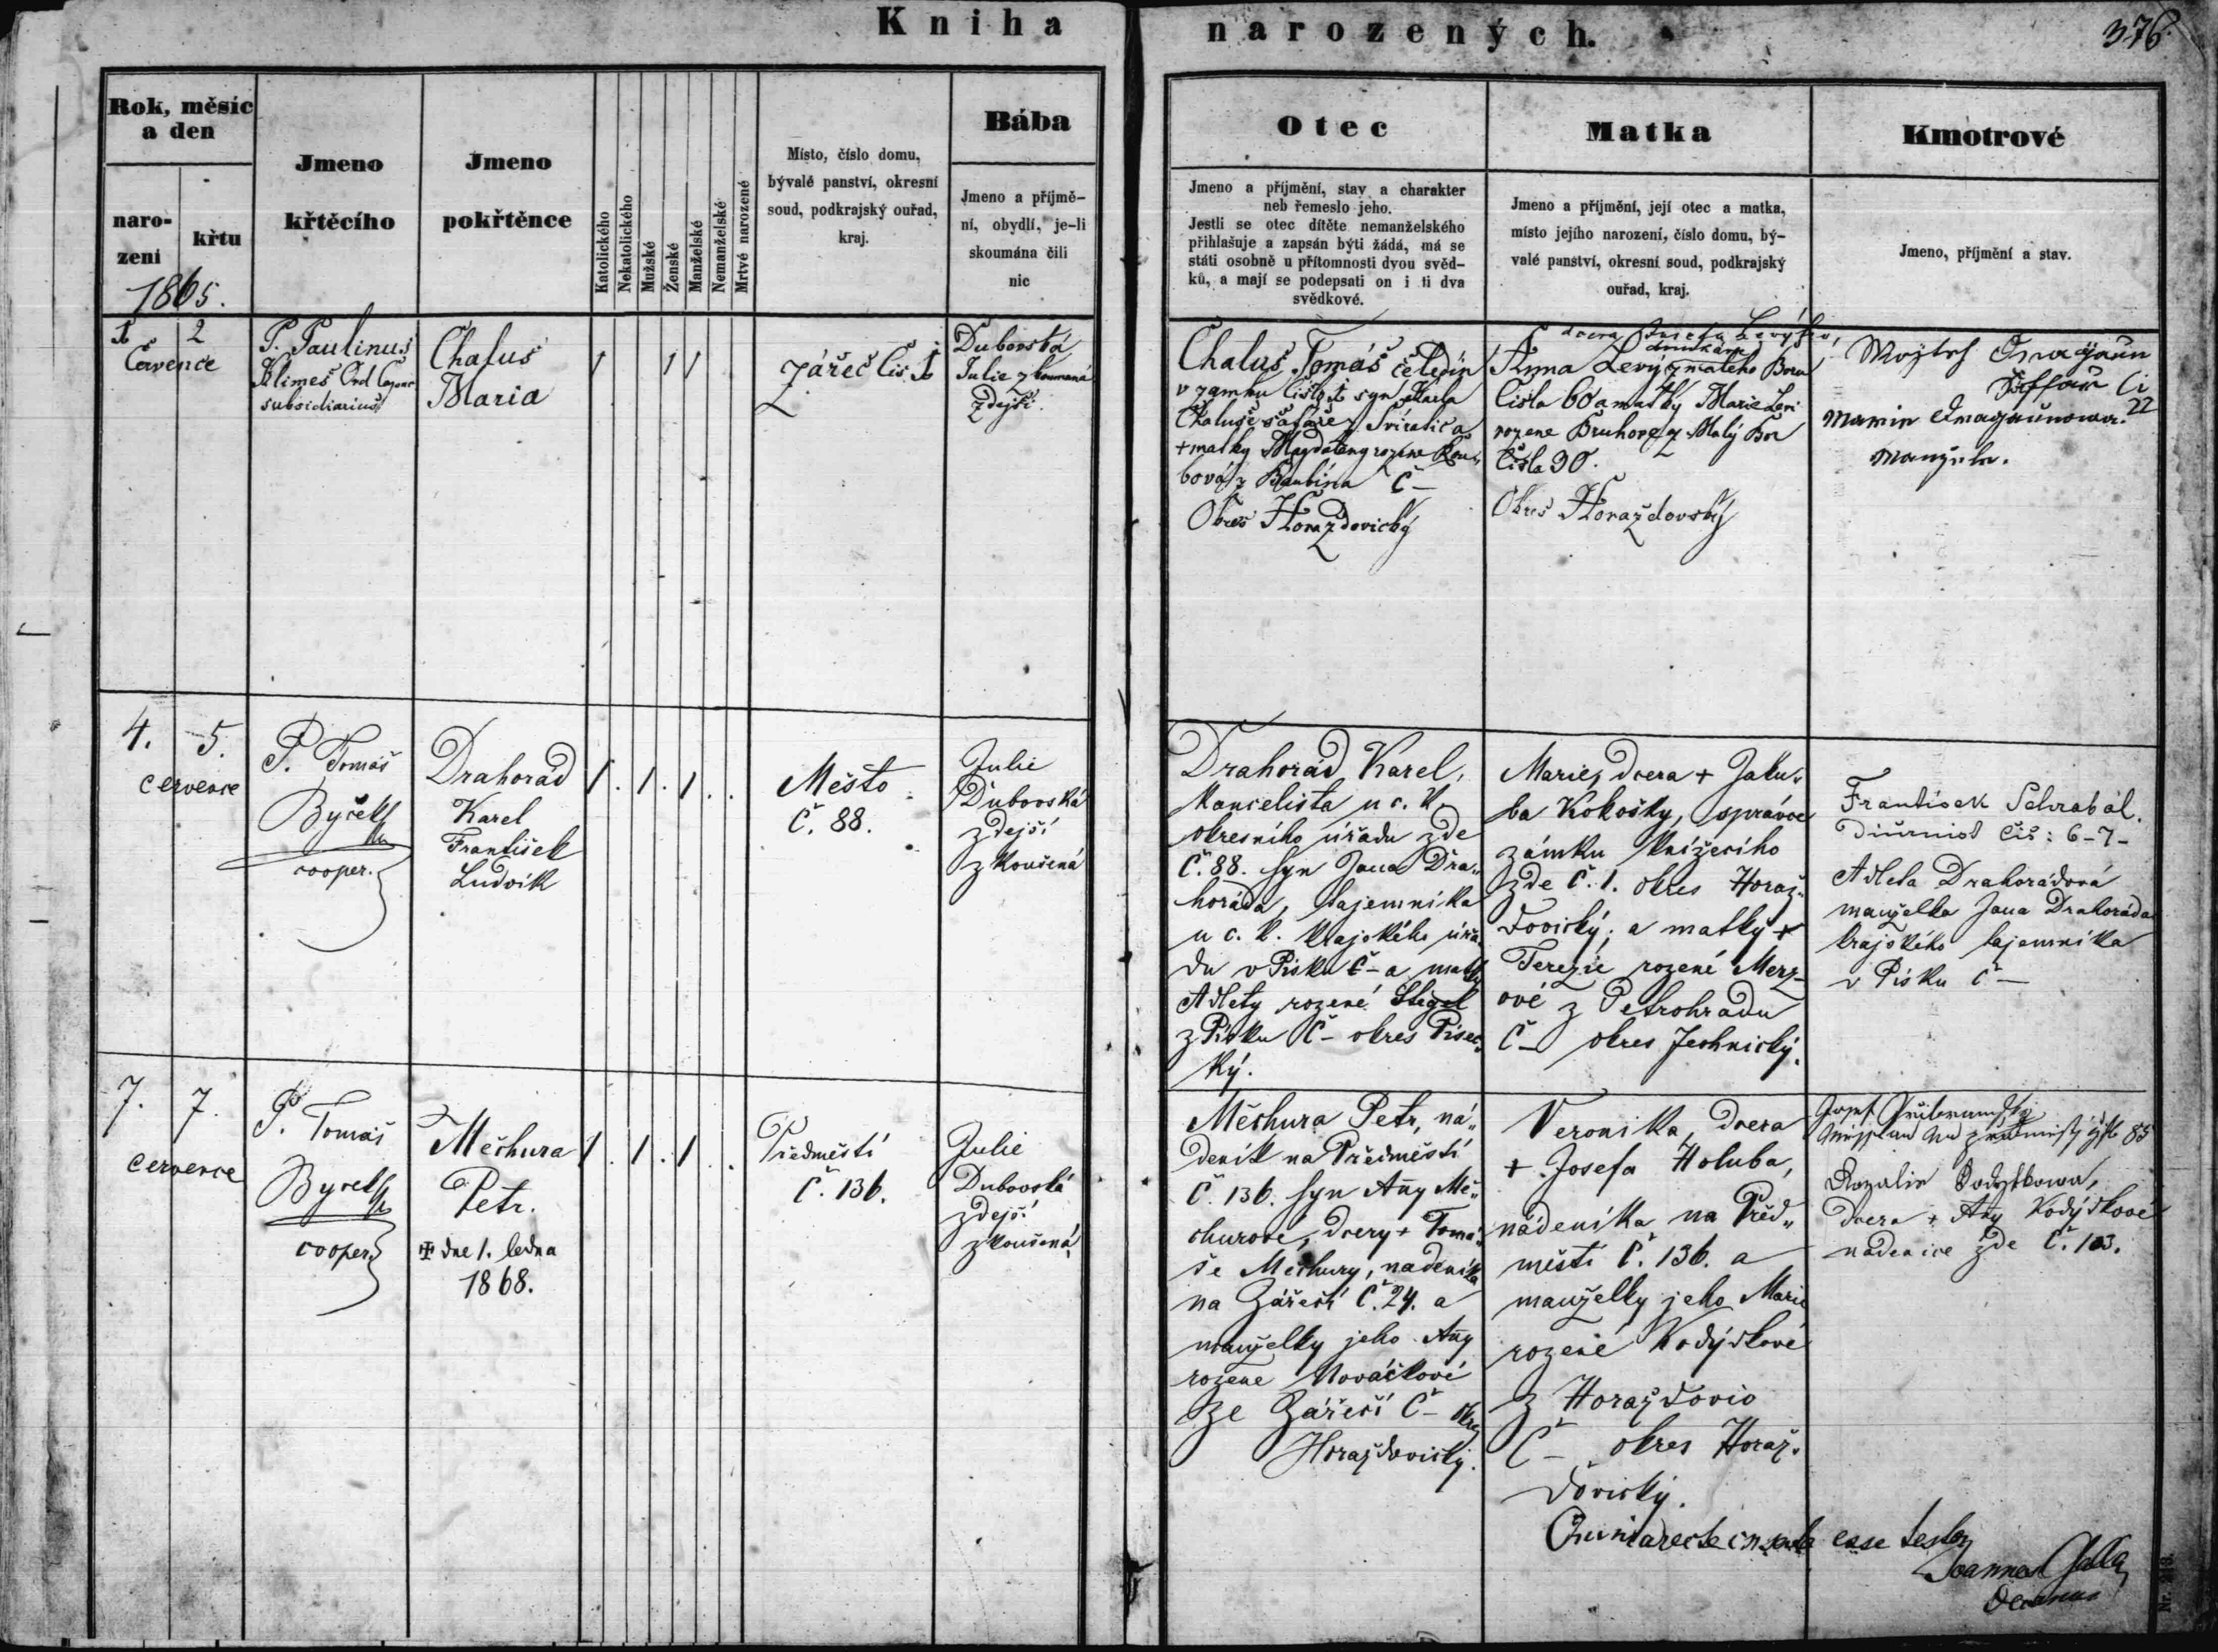 Kniha narozených.
376.
Rok, měsíc
a den
naro-
zení
křtu
1865.
Jmeno
křtěcího
Jmeno
pokřtěnce
Katolického
Nekatolického
Mužské
Ženské
Manželské
Nemanželské
Mrtvé narozené
Místo, číslo domu,
bývalé panství, okresní
soud, podkrajský ouřad,
kraj.
Bába
Jmeno a příjmě-
ní, obydlí, je-li
skoumána čili
nic
Otec
Jmeno a příjmění, stav a charakter
neb řemeslo jeho.
Jestli se otec dítěte nemanželského
přihlašuje a zapsán býti žádá, má se
státi osobně u přítomnosti dvou svěd-
ků, a mají se podepsati on i ti dva
svědkové.
Matka
Jmeno a příjmění, její otec a matka,
místo jejího narození, číslo domu, bý-
valé panství, okresní soud, podkrajský
ouřad, kraj.
Kmotrové
Jmeno, příjmění a stav.
1 2
Července
P. Paulinus
Klimeš Ord Capuc
subsidiarius
Chaluš
Maria
1 1 1
Zářeč čis 1
Dubovská
Julie zkoumaná
zdejší.
Chaluš Tomáš čeledín
v zamku číslo 1 syn Karla
Chaluše šafáře z Sviratic a
+ matky Magdaleny rozene
bová z Č –
Okres Horažďovický
dcera Josefa Levýho,
Anna Levý z malého Boru
čísla 60 a matky Marie Levi
rozene Bruhove z Malý Bor
čísla 30.
Okres Horažďovský
22
4. 5.
července
P. Tomáš
Byček
cooper.
Drahorád
Karel
František
Ludvík
1. 1. 1. .
Město
č. 88.
Julie
Dubovská
zdejší
zkoušená
Drahorád Karel,
kancelista u c. k.
okresního úřadu zde
č. 88. syn Jana Dra-
horáda, tajemníka
u c. k. krajského úřa-
du v Písku č – a matky
Adlety rozené
z Písku č – okres Písec-
ký.
Marie, dcera + Jaku-
ba Kokošky, správce
zámku knížecího
zde č. 1. okres Horaž-
ďovický; a matky +
Terezie rozené Merz-
ové z Petrohradu
č – okres Jechnický.
František Schrabál.
Diurnist čis: 6-7-
Adleta Drahorádová
manželka Jana Drahoráda
krajského tajemníka
v Písku č –
7. 7.
července
P. Tomáš
Byček
cooper.
Měchura
Petr.
✠ dne 1. ledna
1868.
1. 1. 1. .
Předměstí
č. 136.
Julie
Dubovská
zdejší
zkoušená
Měchura Petr, ná-
deník na Předměstí
č. 136. syn Anny Mě-
churové, dcery + Tomá-
še Měchury, nadeníka
na Zářečí č. 24. a
manželky jeho Anny
rozene Nováčkové
ze Zářečí č – okres
Horažďovický.
Veronika, dcera
+ Josefa Holuba,
nádeníka na Před-
městí č. 136. a
manželky jeho Marie
rozené Kodýdkové
z Horažďovic
č – okres Horaž-
ďovický.
Josef
85
Rozalie
dcera + Anny Kodýdkové
nádenice zde č. 103.
esse testor
Joannes
Decanus